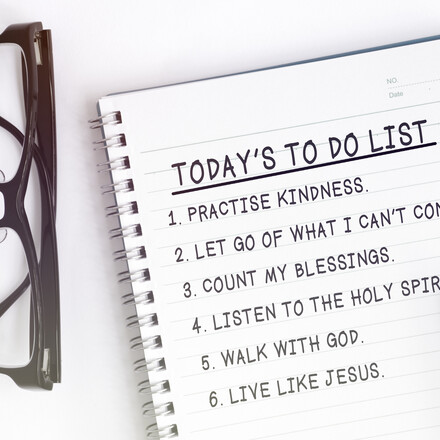 NO.
Date
TODAY'S TO DO LIST
1. PRACTISE KINDNESS.
2. LET GO OF WHAT I CAN'T CON
3. COUNT MY BLESSINGS.
4. LISTEN TO THE HOLY SPIR
5. WALK WITH GOD.
6. LIVE LIKE JESUS.